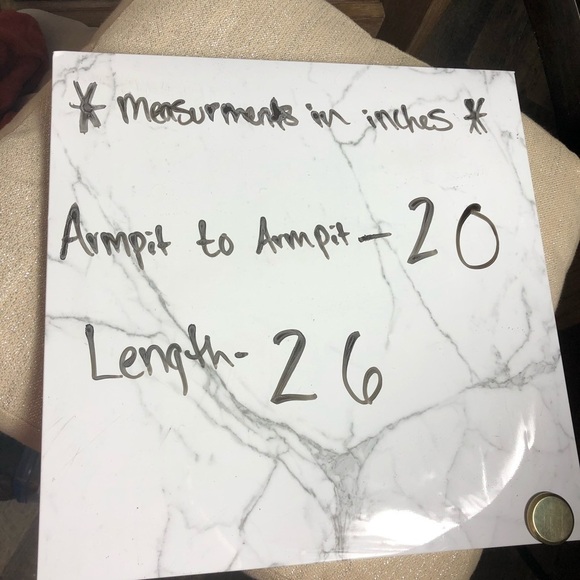 * Measurments in inches *
Armpit to Armpit - 20
Length - 26